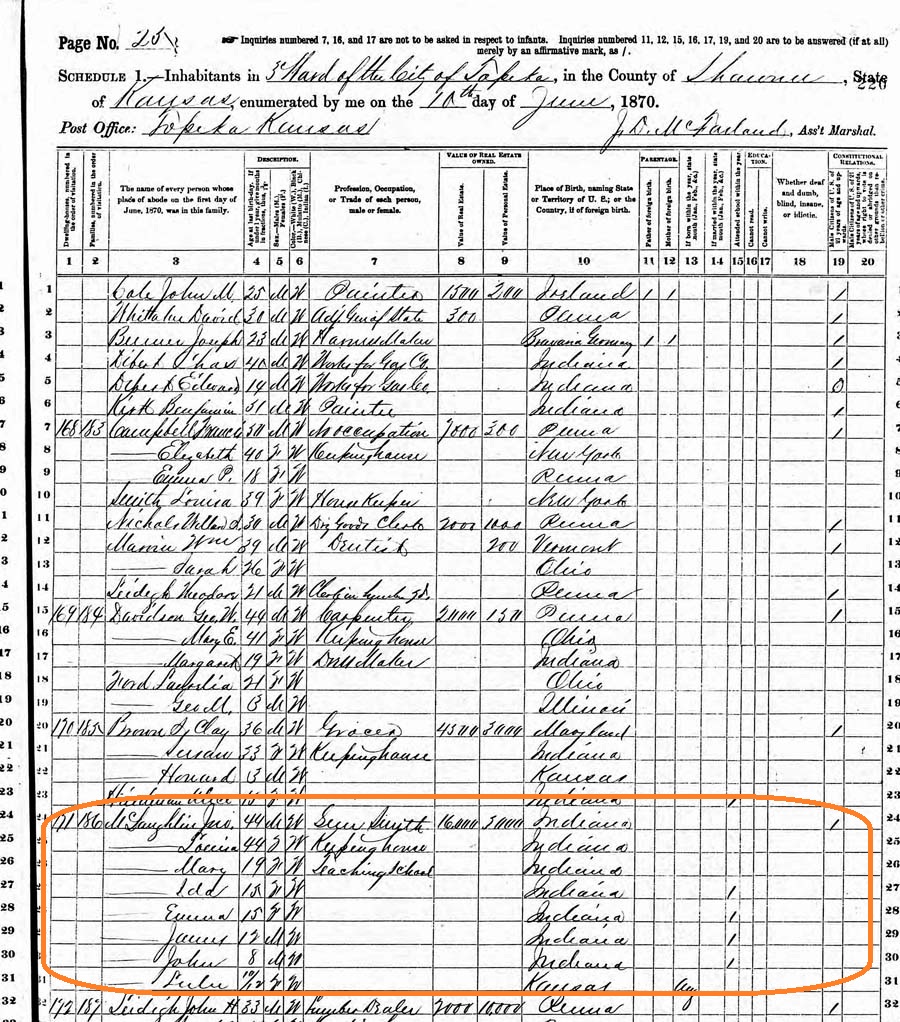 Page No. 25
☛ Inquiries numbered 7, 16, and 17 are not to be asked in respect to infants. Inquiries numbered 11, 12, 15, 16, 17, 19, and 20 are to be answered (if at all) merely by an affirmative mark, as /.
SCHEDULE 1.—Inhabitants in 3 Ward of the City of Topeka, in the County of Shawnee, State
226
of Kansas, enumerated by me on the 10th day of June, 1870.
Post Office: Topeka Kansas J. D. McFarland, Ass't Marshal.
DESCRIPTION. VALUE OF REAL ESTATE OWNED. PARENTAGE. EDUCATION. CONSTITUTIONAL RELATIONS.
Dwelling-houses, numbered in the order of visitation.
Families, numbered in the order of visitation.
The name of every person whose place of abode on the first day of June, 1870, was in this family.
Profession, Occupation, or Trade of each person, male or female.
Value of Real Estate.
Value of Personal Estate.
Place of Birth, naming State or Territory of U. S.; or the Country, if of foreign birth.
Father of foreign birth.
Mother of foreign birth.
If born within the year, state month (Jan., Feb., &c.)
If married within the year, state month (Jan., Feb., &c.)
Attended school within the year.
Cannot read.
Cannot write.
Whether deaf and dumb, blind, insane, or idiotic.
1 2 3 4 5 6 7 8 9 10 11 12 13 14 15 16 17 18 19 20
1 Cole John M. 25 M W Painter 1500 200 Ireland / / /
2 David 30 M W Adj. Gen of State 300 Penna /
3 Joseph 23 M W Harness Maker Bavaria Germany / / /
4 Chas 40 M W Works for Gas Co. Indiana /
5 Edward 19 M W Works for Gas Co. Indiana 0
6 Kirk Benjamin 31 M W Painter Indiana /
7 168 183 Campbell Francis M W No occupation 7000 300 Penna /
8 —— Elizabeth 40 F W Keeping house New York
9 —— Emma P. 18 F W Penna
10 Smith Louisa 39 F W House Keeper New York
11 Nichols 30 M W Dry Goods Clerk 2000 1000 Penna /
12 Marvin Wm 39 M W Dentist 200 Vermont /
13 —— Sarah 26 F W Ohio
14 Leidigh Theodore 21 M W Clerk in Lumber Yd. Penna /
15 169 184 Davidson Geo. W. 44 M W Carpentry 2000 150 Penna /
16 —— Mary E. 41 F W Keeping house Ohio
17 —— Margaret 19 F W Dress Maker Indiana
18 Ford 21 F W Ohio
19 —— Geo M. 3 M W Illinois
20 170 185 Brown J. Clay 36 M W Grocer 4500 3000 Maryland /
21 —— Susan 33 F W Keeping house Indiana
22 —— Howard 3 M W Kansas
23 Alice W Indiana /
24 171 186 McLaughlin Jno. 44 M W Gun Smith 16,000 3,000 Indiana /
25 —— Louisa 44 F W Keeping house Indiana
26 —— Mary 19 F W Teaching School Indiana
27 —— Ida 15 F W Indiana /
28 —— Emma 15 F W Indiana /
29 —— James 12 M W Indiana /
30 —— John 8 M W Indiana /
31 —— Lulu 10/12 F W Kansas Aug
32 172 187 Leidigh John H 33 M W Lumber Dealer 7000 10,000 Penna /